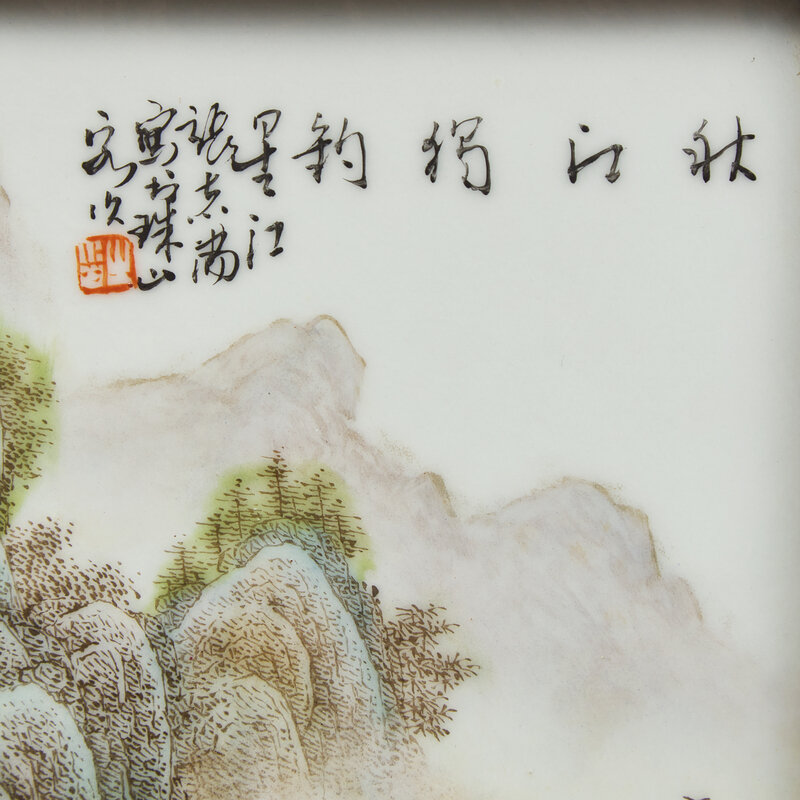 秋江獨釣
星江
張志滿
寫於珠山
客次